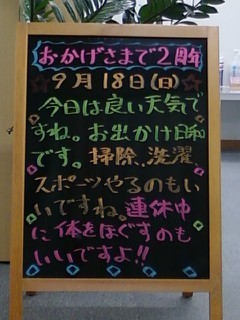 おかげさまで2周年
9月18日(日)
今日は良い天気で
すね。お出かけ日和
です。掃除、洗濯、
スポーツやるのもい
いですね。連休中
に体をほぐすのも
いいですよ!!